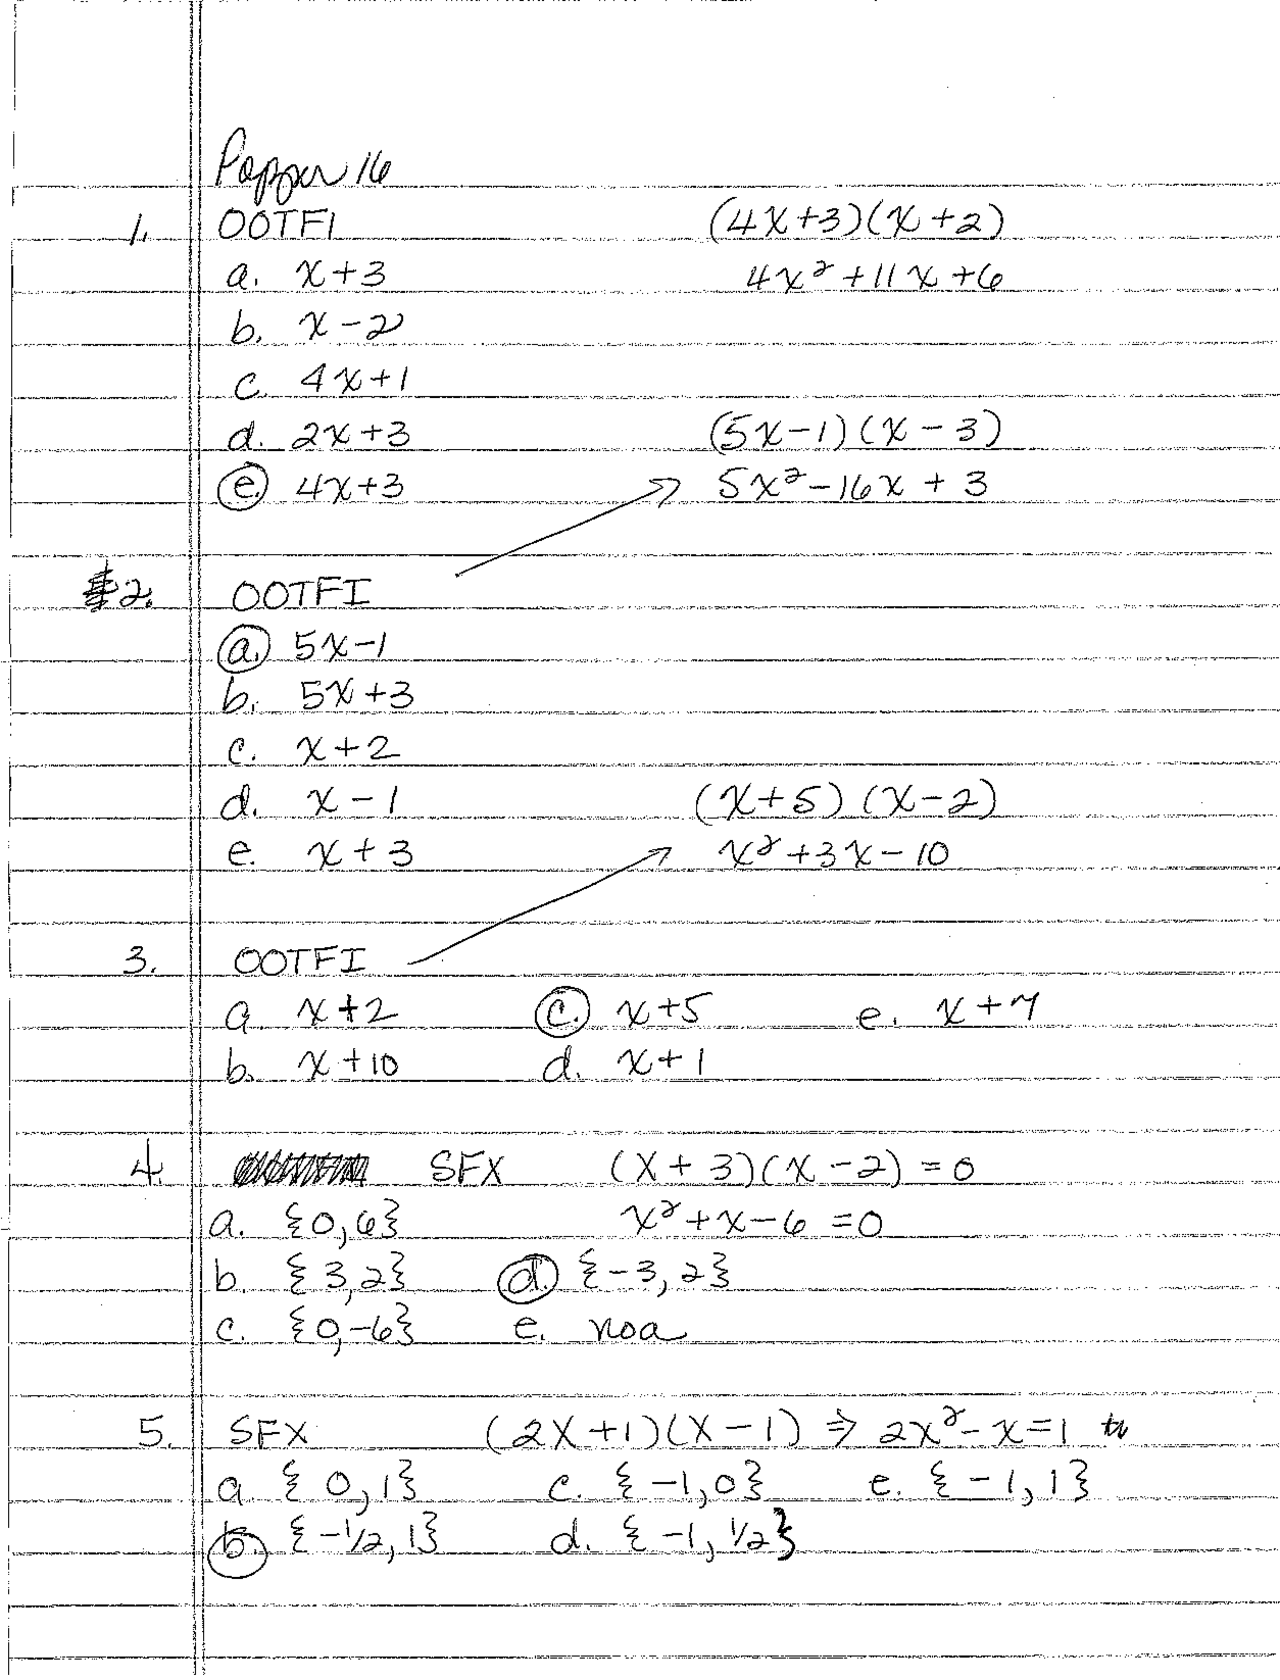 Popper 16
1. OOTFI (4x+3)(x+2)
a. x+3 4x²+11x+6
b. x-2
c. 4x+1
d. 2x+3 (5x-1)(x-3)
e. 4x+3 → 5x²-16x+3
2. OOTFI
a. 5x-1
b. 5x+3
c. x+2
d. x-1 (x+5)(x-2)
e. x+3 → x²+3x-10
3. OOTFI
a. x+2 c. x+5 e. x+7
b. x+10 d. x+1
4. SFX (x+3)(x-2)=0
a. {0,6} x²+x-6=0
b. {3,2} d. {-3,2}
c. {0,-6} e. noa
5. SFX (2x+1)(x-1) ⇒ 2x²-x=1
a. {0,1} c. {-1,0} e. {-1,1}
b. {-1/2,1} d. {-1,1/2}